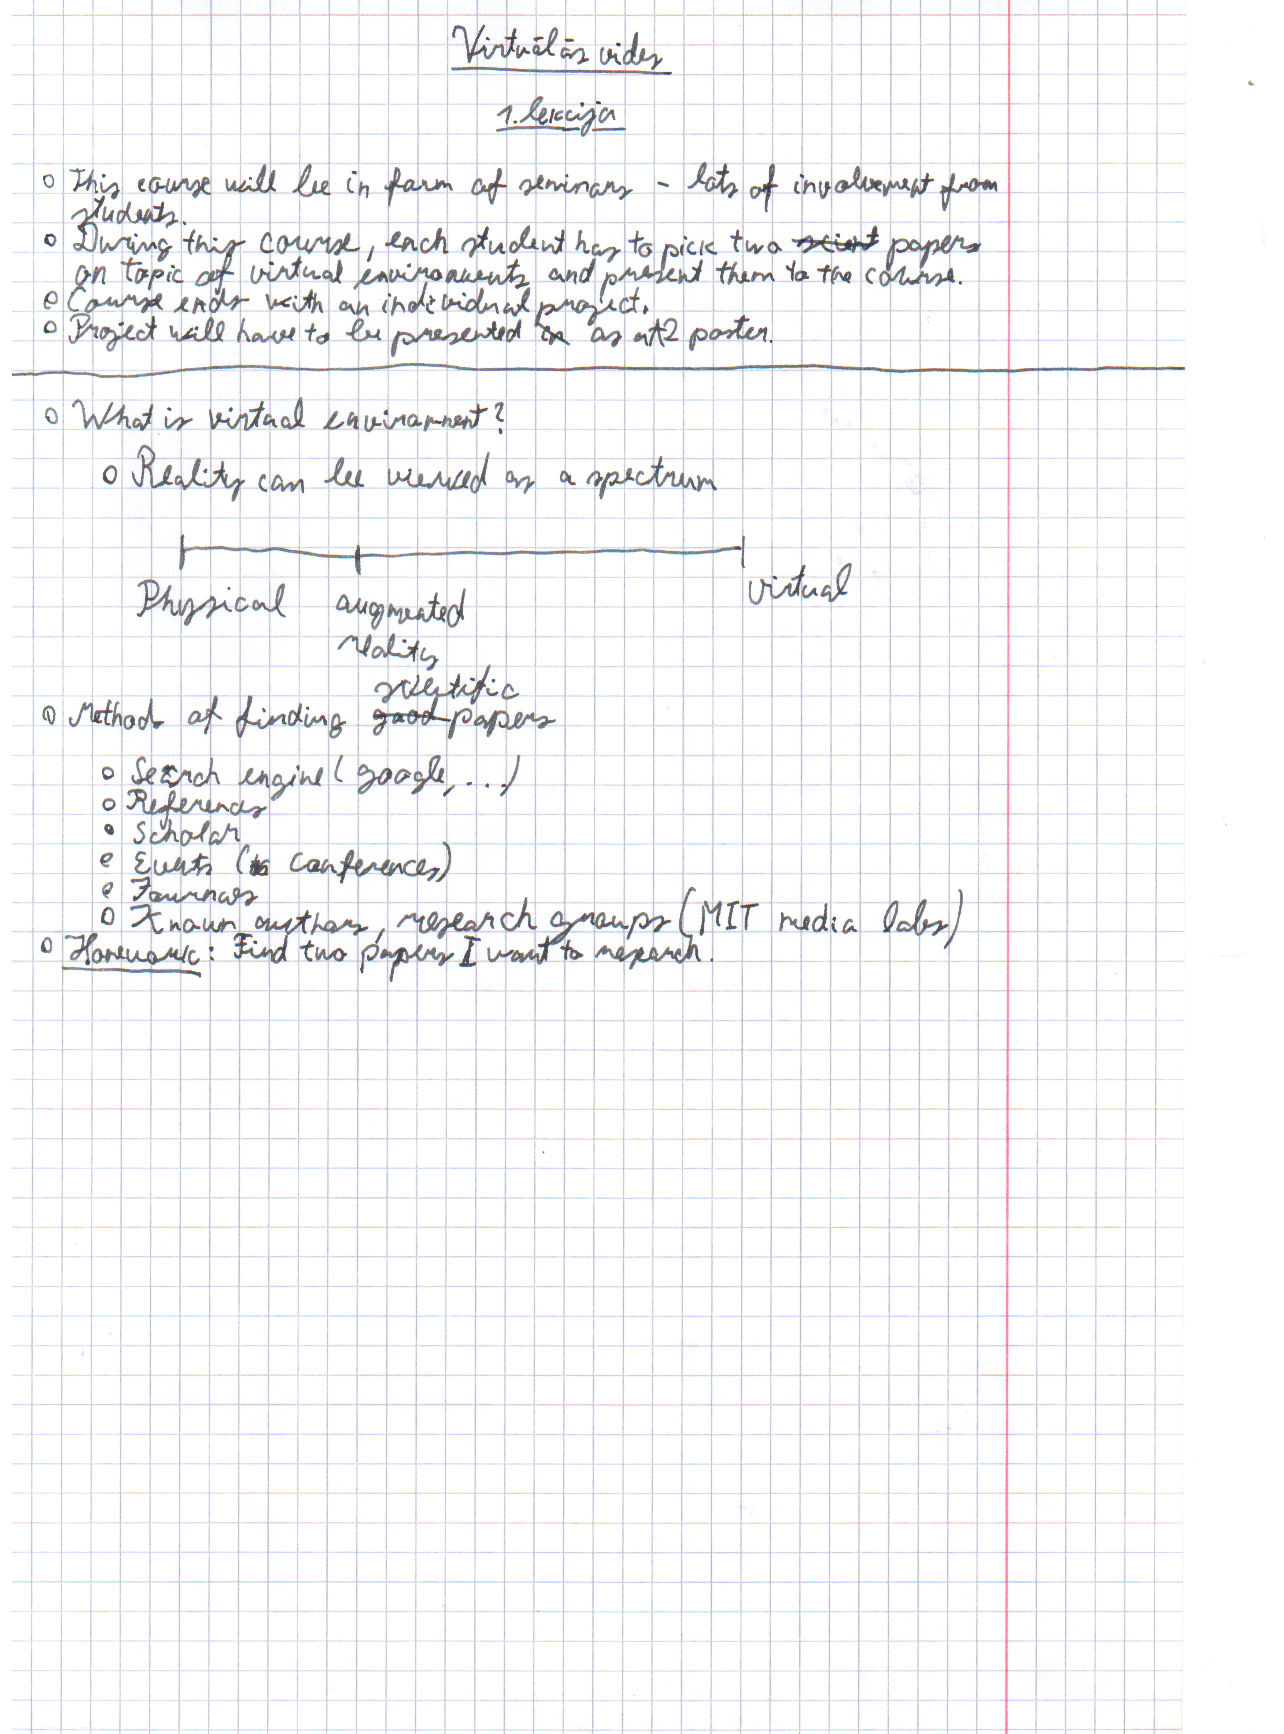 Virtuālās vides
1. lekcija
This course will be in form of seminars - lots of involvement from
students.
During this course, each student has to pick two scient papers
on topic of virtual enviroments and present them to the course.
Course ends with an individual project.
Project will have to be presented in as a A2 poster.
What is virtual enviroment?
Reality can be viewed as a spectrum
Physical augmented virtual
reality
scientific
Methods of finding good papers
Search engine (google, ...)
References
Scholar
Events ( conferences)
Journals
Known authors, research groups (MIT media labs)
Homework: Find two papers I want to research.